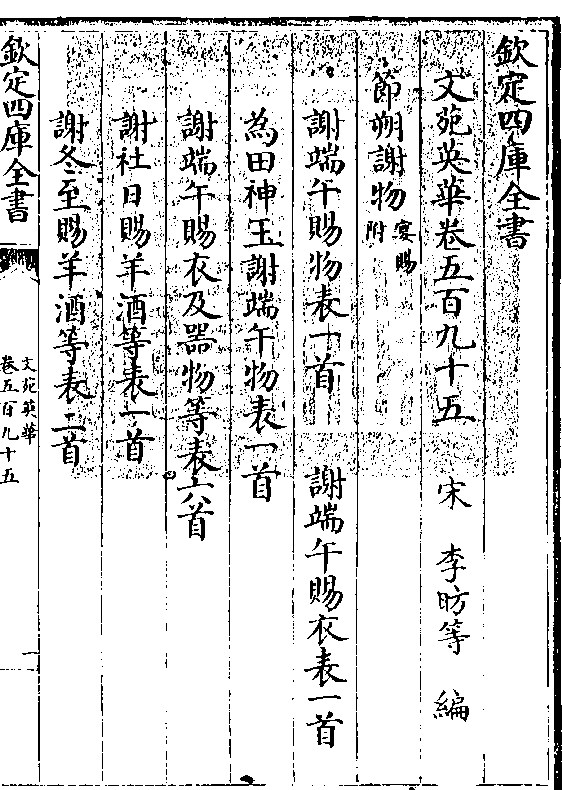 欽定四庫全書
文苑英華卷五百九十五 宋 李昉等 編
節朔謝物宴賜附
謝端午賜物表一首 謝端午賜衣表一首
為田神玉謝端午物表一首
謝端午賜衣及器物等表六首
謝社日賜羊酒等表一首
謝冬至賜羊酒等表二首
欽定四庫全書
文苑英華
卷五百九十五
一